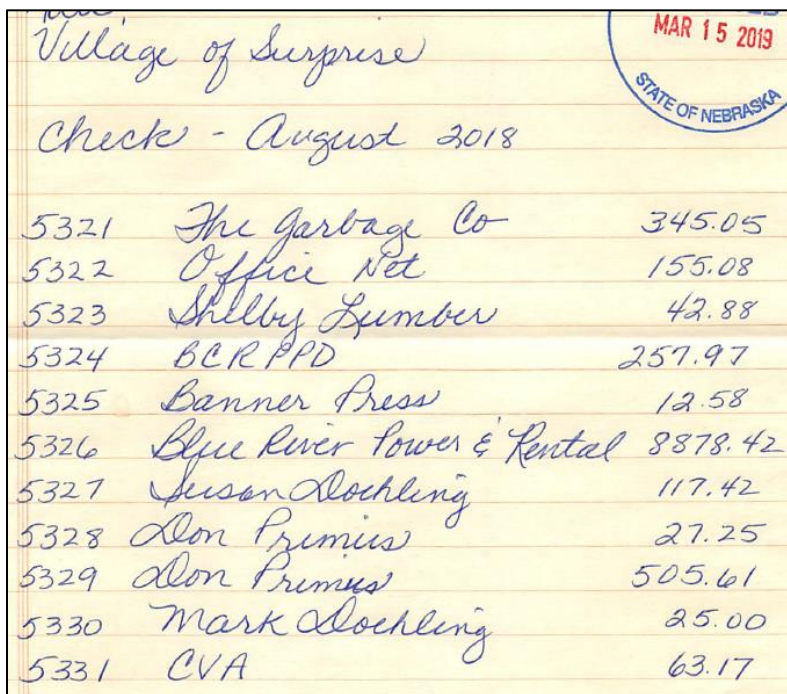 Village of Surprise
MAR 15 2019
STATE OF NEBRASKA
Check - August 2018
5321 The Garbage Co 345.05
5322 Office Net 155.08
5323 Shelby Lumber 42.88
5324 BCRPPD 257.97
5325 Banner Press 12.58
5326 Blue River Power & Rental 8878.42
5327 Susan Dochling 117.42
5328 Don Primus 27.25
5329 Don Primus 505.61
5330 Mark Dochling 25.00
5331 CVA 63.17